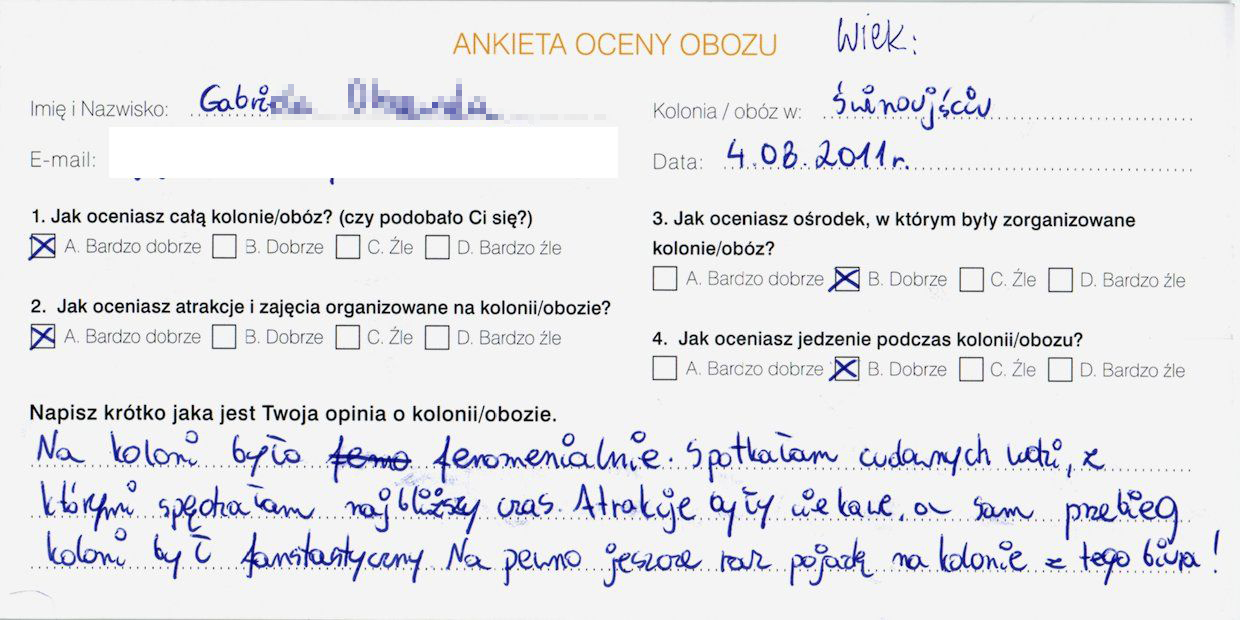 ANKIETA OCENY OBOZU Wiek:
Imię i Nazwisko: Kolonia / obóz w: Świnoujściu
E-mail: Data: 4.08.2011r.
1. Jak oceniasz całą kolonie/obóz? (czy podobało Ci się?)
A. Bardzo dobrze B. Dobrze C. Źle D. Bardzo źle
2. Jak oceniasz atrakcje i zajęcia organizowane na kolonii/obozie?
A. Bardzo dobrze B. Dobrze C. Źle D. Bardzo źle
3. Jak oceniasz ośrodek, w którym były zorganizowane
kolonie/obóz?
A. Bardzo dobrze B. Dobrze C. Źle D. Bardzo źle
4. Jak oceniasz jedzenie podczas kolonii/obozu?
A. Bardzo dobrze B. Dobrze C. Źle D. Bardzo źle
Napisz krótko jaka jest Twoja opinia o kolonii/obozie.
Na koloni było femo fenomenialnie. Spotkałam cudownych ludzi, z
którymi spędzałam najbliższy czas. Atrakcje były ciekawe, a sam przebieg
koloni był fanstastyczny Na pewno jeszcze raz pojadę na kolonie z tego biura!